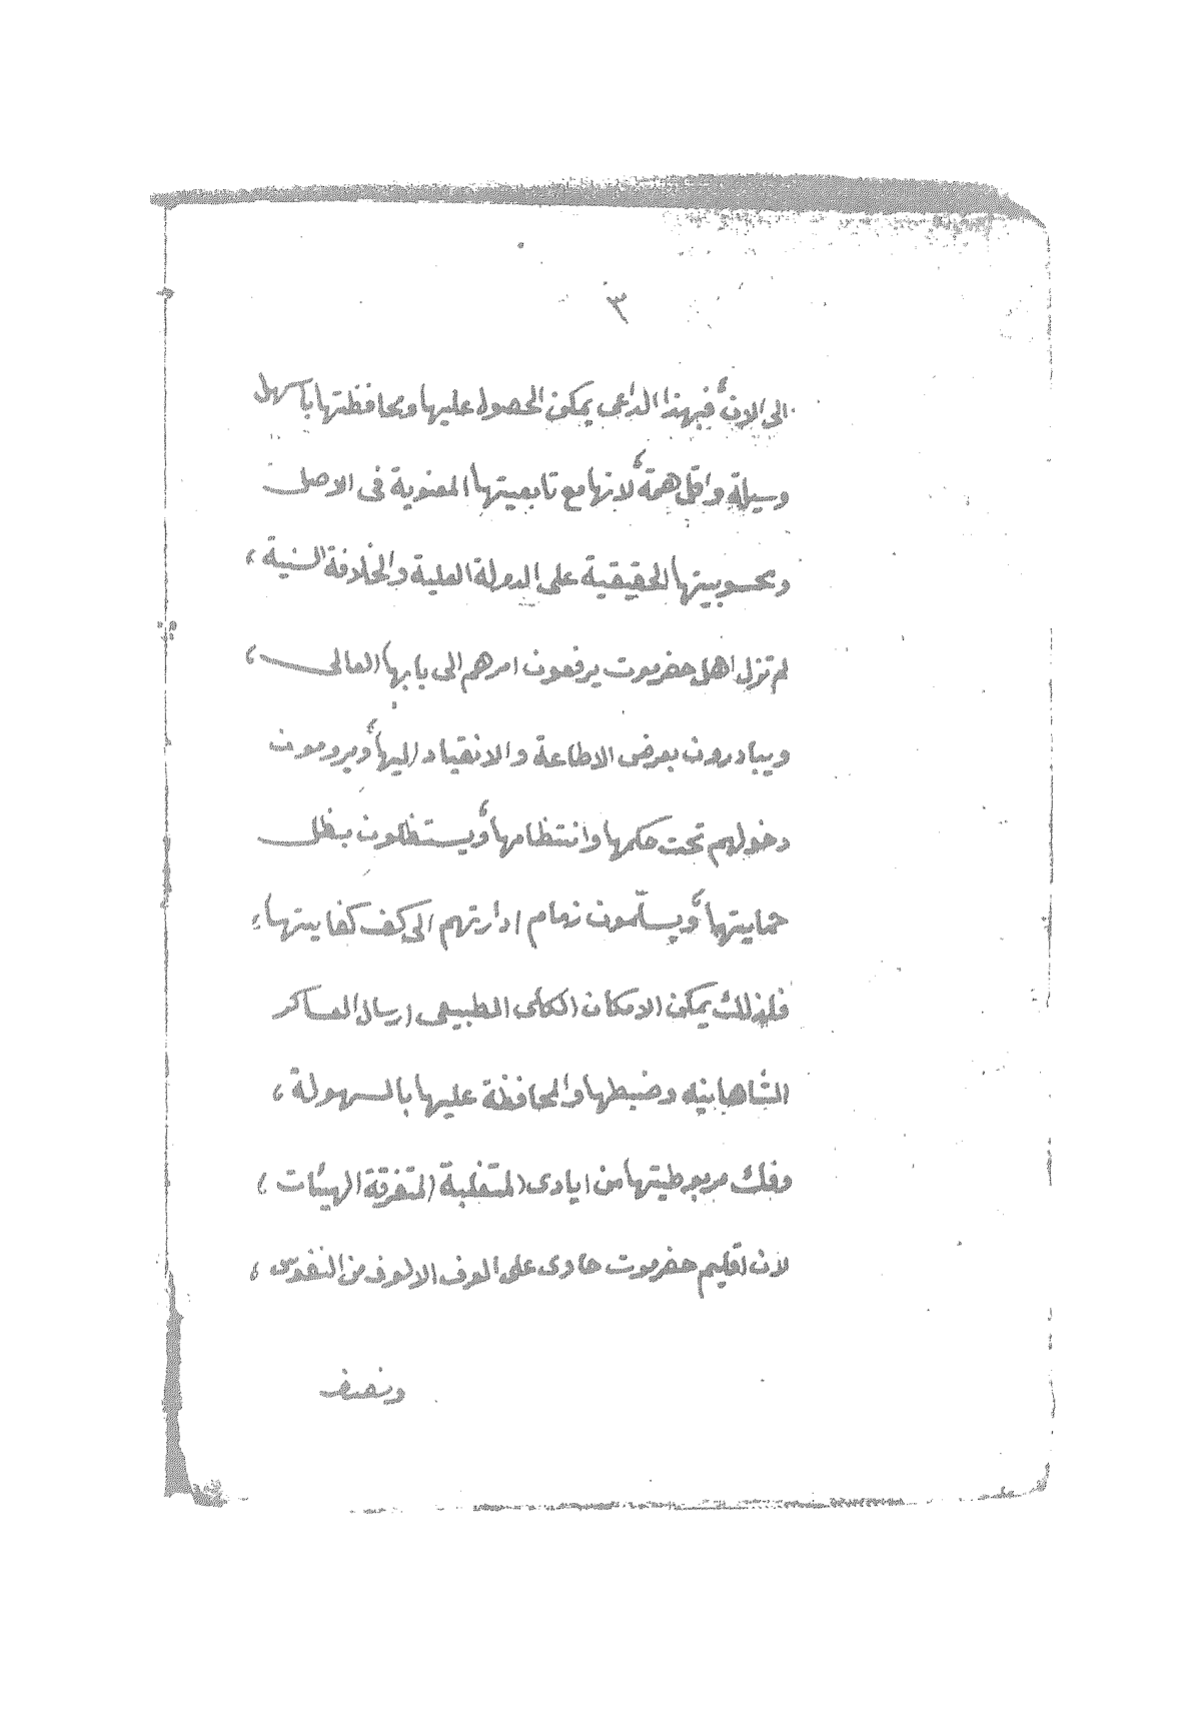 ٣
الى الان، فبهذا الداعى يمكن الحصول عليها ومحافظتها باسهل
وسيلة واقل همة، لانها مع تابعيتها المعنوية فى الاصل
ومحسوبيتها الحقيقية على الدولة العلية والخلافة السنية،
لم تزل اهل حضرموت يرفعون امرهم الى بابها العالى،
ويبادرون بعرض الاطاعة والانقياد اليها، ويرومون
دخولهم تحت حكمها وانتظامها، ويستظلون بظل
حمايتها، ويسلّمون زمام ادارتهم الى كف كفايتها،
فلذلك يمكن الامكان الكلى الطبيعى ارسال العساكر
الشاهانيه وضبطها والمحافظة عليها بالسهولة،
وفك مربوطيتها من ايادى المتغلبة المتفرقة الهيئات،
لان اقليم حضرموت حاوى على الوف الالوف من النفوس،
ونصف